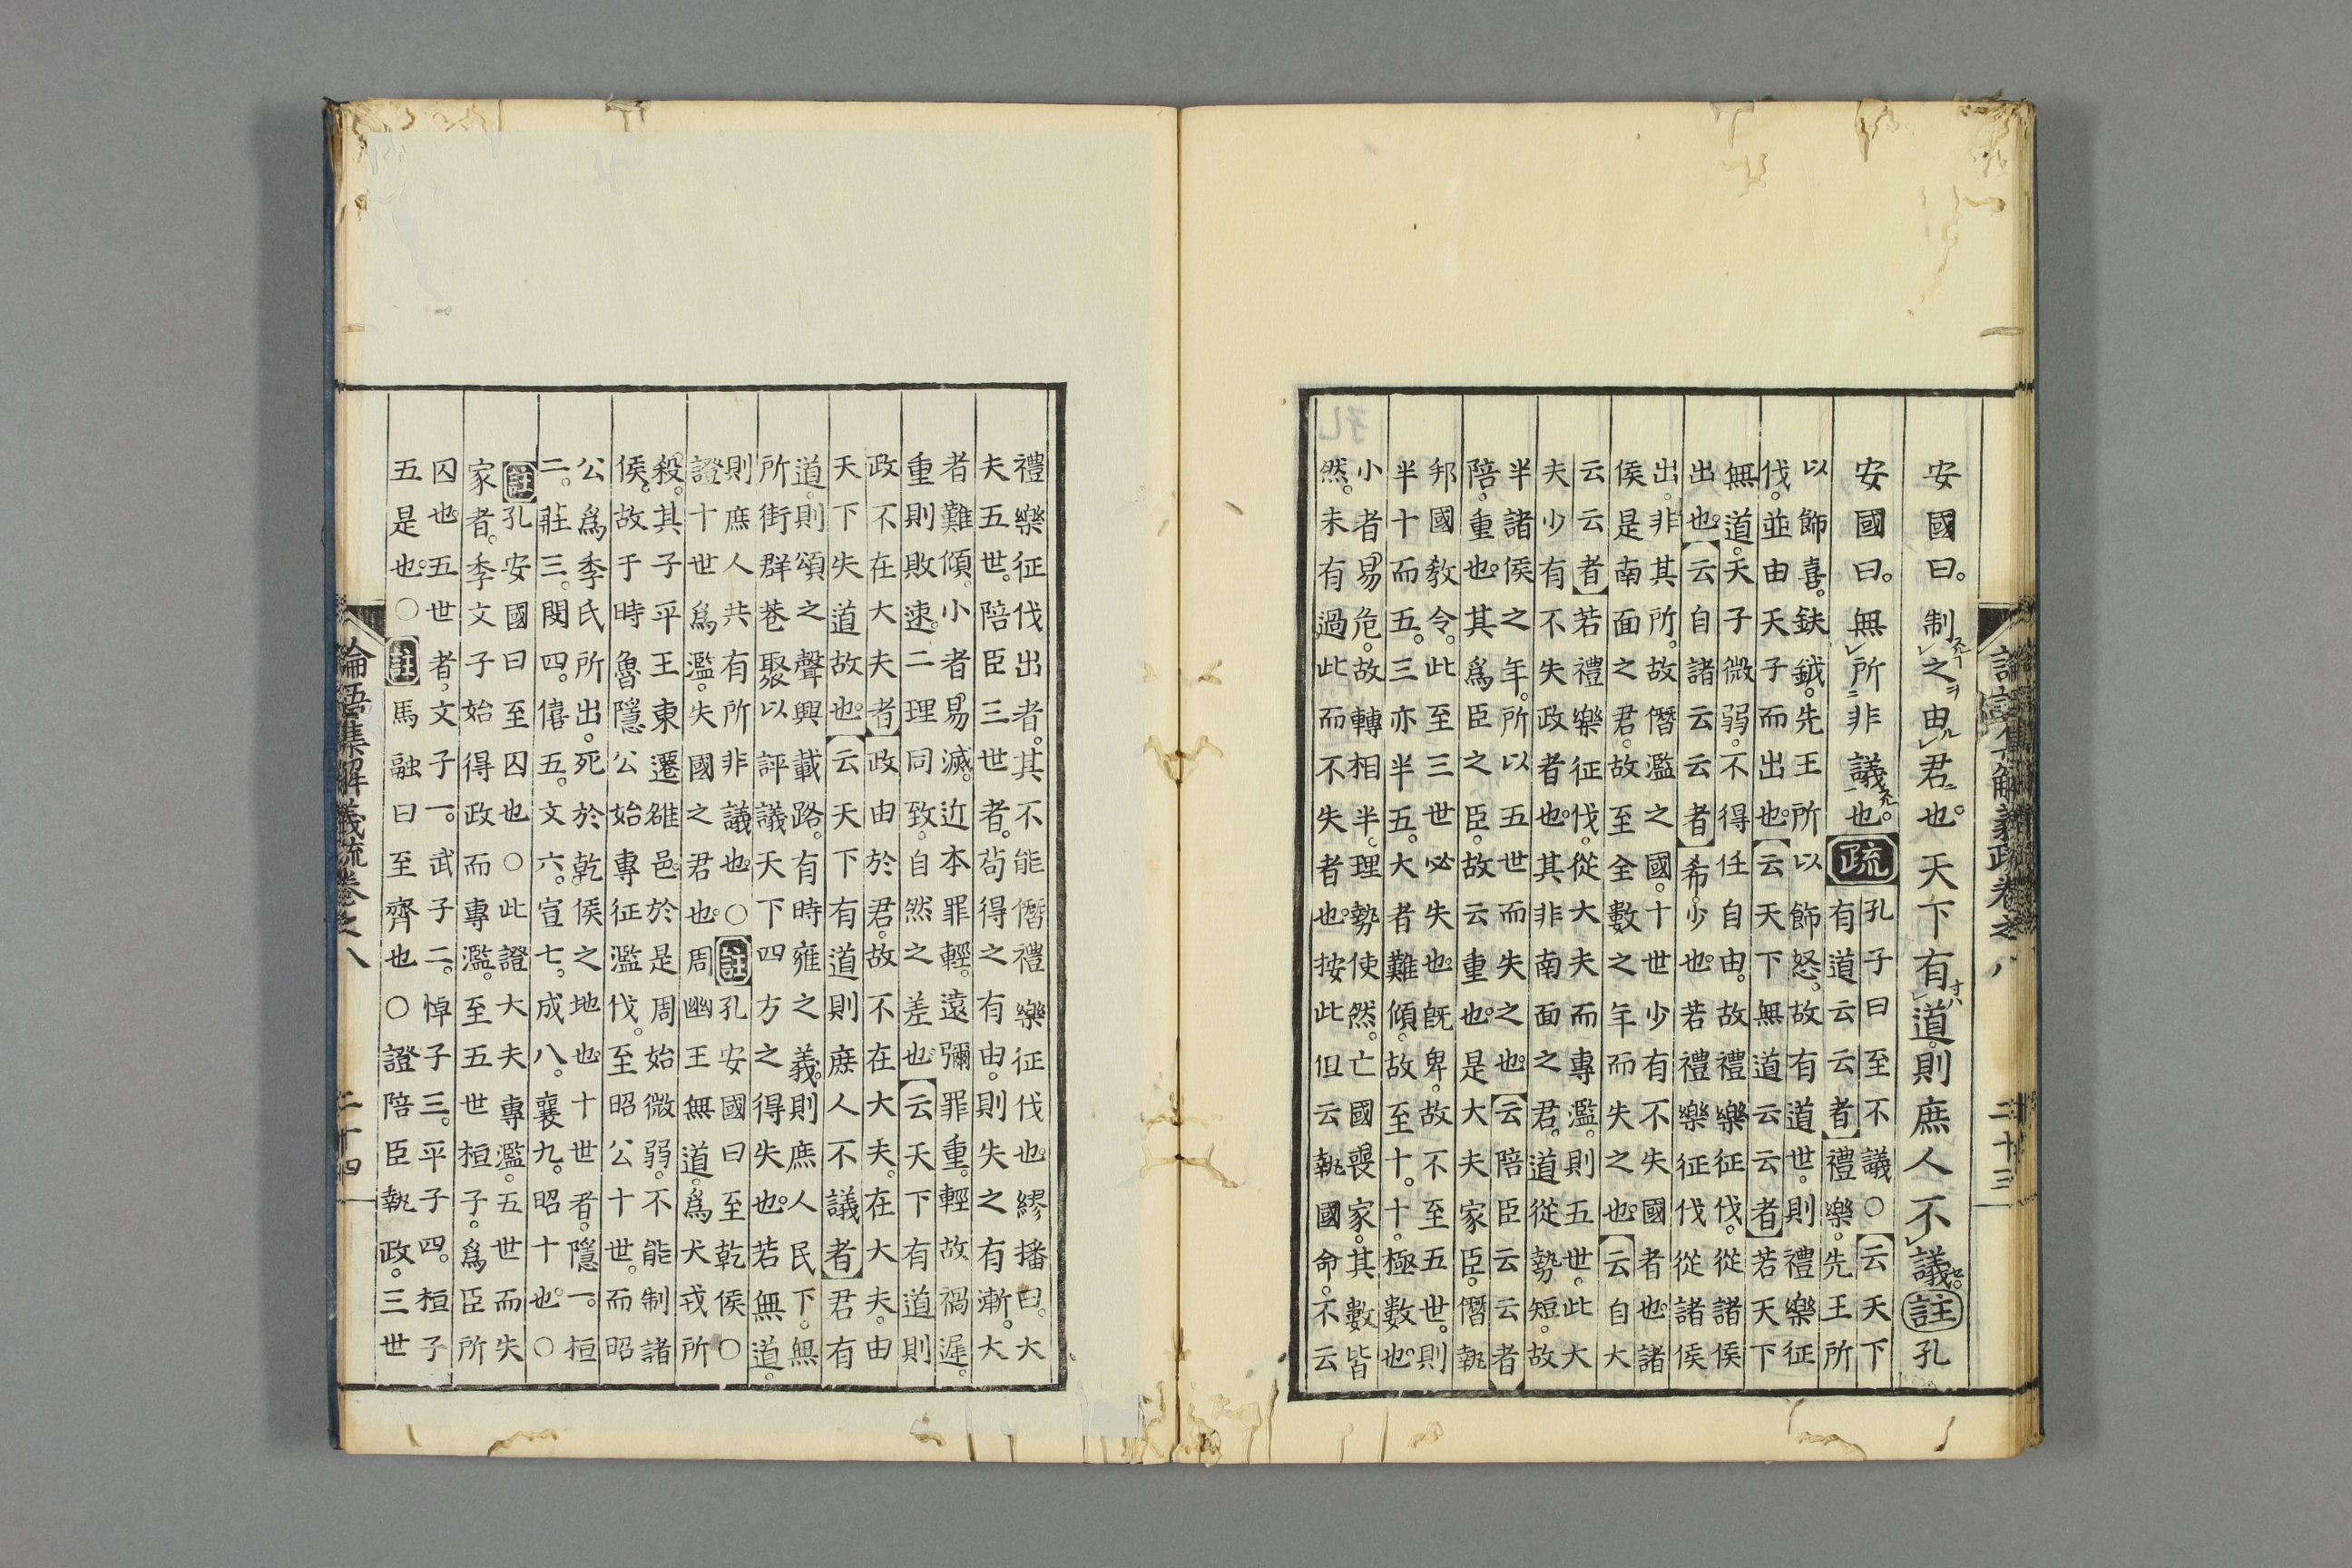 安國曰。制之由君也。天下有道。則庶人不議。註孔
安國曰。無所非議也。疏
孔子曰至不議○【云天下
有道云云者】禮樂。先王所
以飾喜。鈇鉞。先王所以飾怒。故有道世。則禮樂征
伐。並由天子而出也。【云天下無道云云者】若天下
無道。天子微弱。不得任自由。故禮樂征伐。從諸侯
出也。【云自諸云云者】希。少也。若禮樂征伐從諸侯
出。非其所。故僭濫之國。十世少有不失國者也。諸
侯是南面之君。故至全數之年而失之也。【云自大
云云者】若禮樂征伐。從大夫而專濫。則五世。此大
夫少有不失政者也。其非南面之君。道從勢短。故
半諸侯之年。所以五世而失之也。【云陪臣云云者】
陪。重也。其爲臣之臣。故云重也。是大夫家臣。僭執
邦國教令。此至三世必失也。既卑。故不至五世。則
半十而五。三亦半五。大者難傾。故至十。十。極數也。
小者易危。故轉相半。理勢使然。亡國喪家。其數皆
然。未有過此而不失者也。按此但云執國命。不云
禮樂征伐出者。其不能僭禮樂征伐也。繆播曰。大
夫五世。陪臣三世者。苟得之有由。則失之有漸。大
者難傾。小者易滅。近本罪輕。遠彌罪重。輕故禍遲。
重則敗速。二理同致。自然之差也。【云天下有道則
政不在大夫者】政由於君。故不在大夫。在大夫。由
天下失道故也。【云天下有道則庶人不議者】君有
道。則頌之聲興載路。有時雍之義。則庶人民下。無
所街群巷聚以評議天下四方之得失也。若無道。
則庶人共有所非議也。○註孔安國曰至乾侯○
證十世爲濫。失國之君也。周幽王無道。爲犬戎所
殺。其子平王東遷雒邑。於是周始微弱。不能制諸
侯。故于時魯隱公始專征濫伐。至昭公十世。而昭
公爲季氏所出。死於乾侯之地也。十世者。隱一。桓
二。莊三。閔四。僖五。文六。宣七。成八。襄九。昭十也。○
註孔安國曰至囚也○此證大夫專濫。五世而失
家者。季文子始得政而專濫。至五世桓子。爲臣所
囚也。五世者。文子一。武子二。悼子三。平子四。桓子
五是也。○註馬融曰至齊也○證陪臣執政。三世
論語集解義疏卷之八 二十四